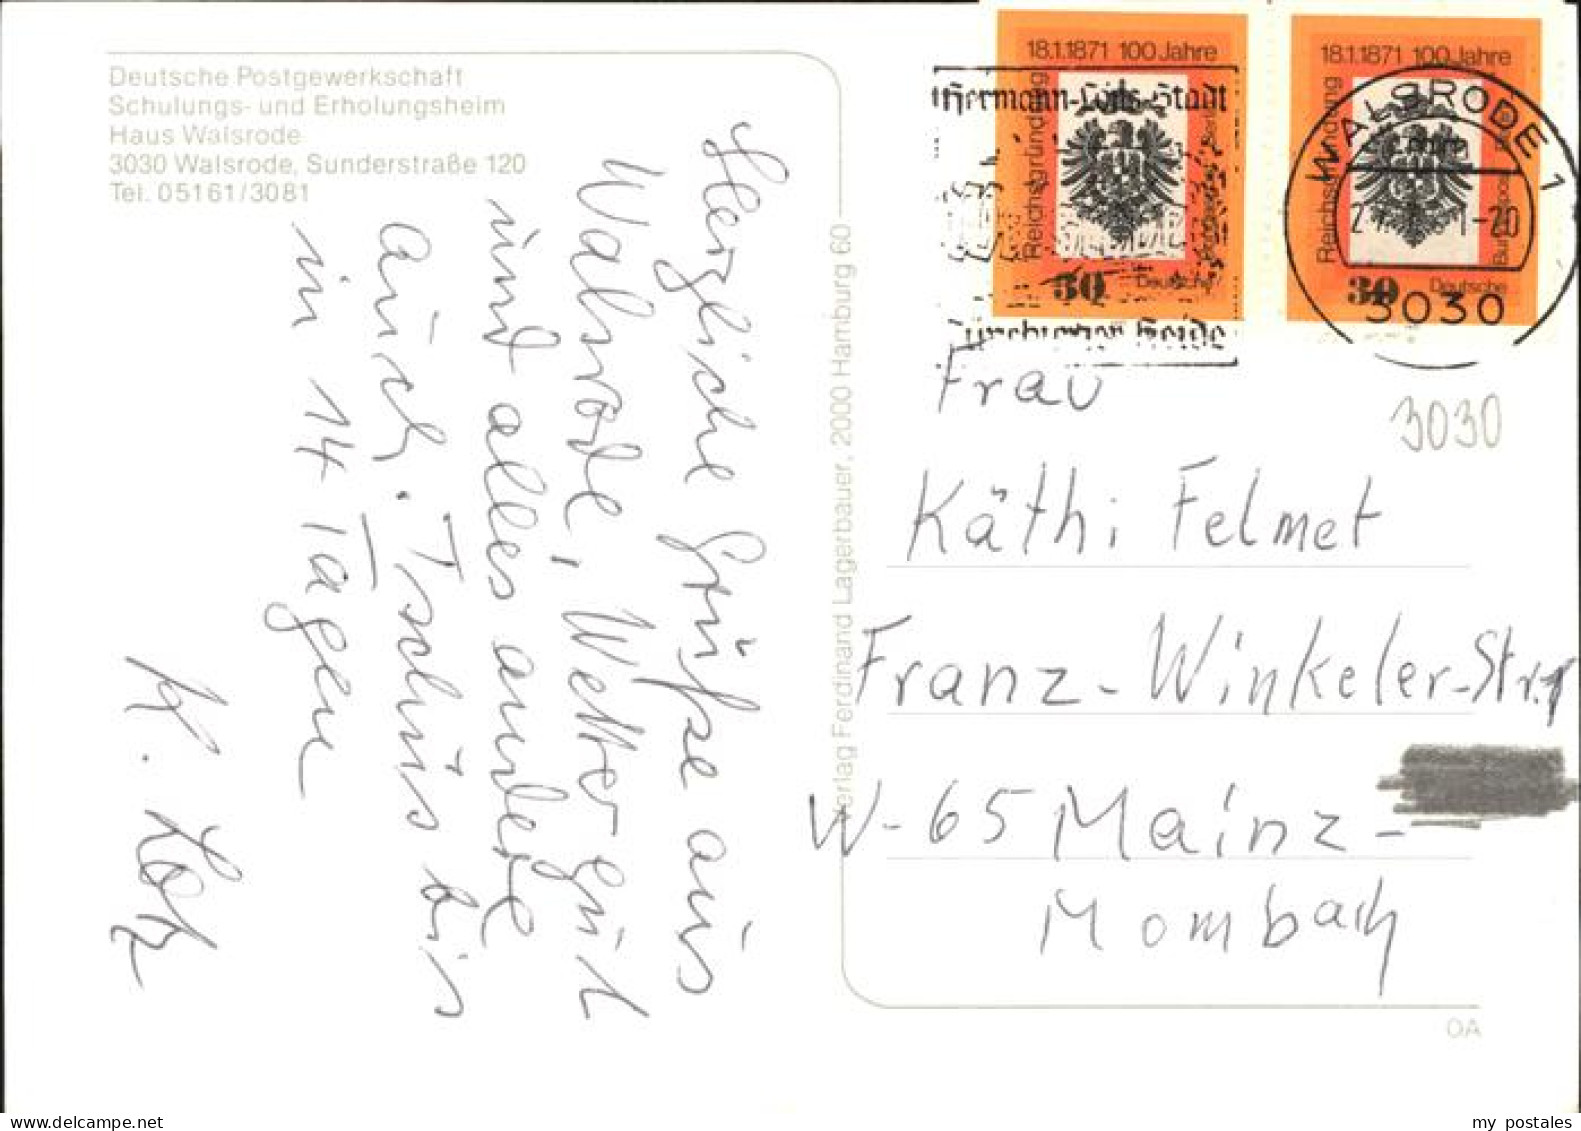 Deutsche Postgewerkschaft
Schulungs- und Erholungsheim
Haus Walsrode
3030 Walsrode, Sunderstraße 120
Tel. 05161/3081
Herzliche Grüße aus
Walsrode, Wetter gut
und alles andere
auch. Tschüs bis
in 14 Tagen
K. Kotz
Verlag Ferdinand Lagerbauer, 2000 Hamburg 60
18.1.1871 100 Jahre
Reichsgründung
Deutsche
30
18.1.1871 100 Jahre
Reichsgründung
Deutsche
30
Hermann-Löns-Stadt
Heide
WALSRODE 1
-20
3030
3030
Frau
Käthi Felmet
Franz-Winkeler-Str.
W-65 Mainz-
Mombach
OA
my postales